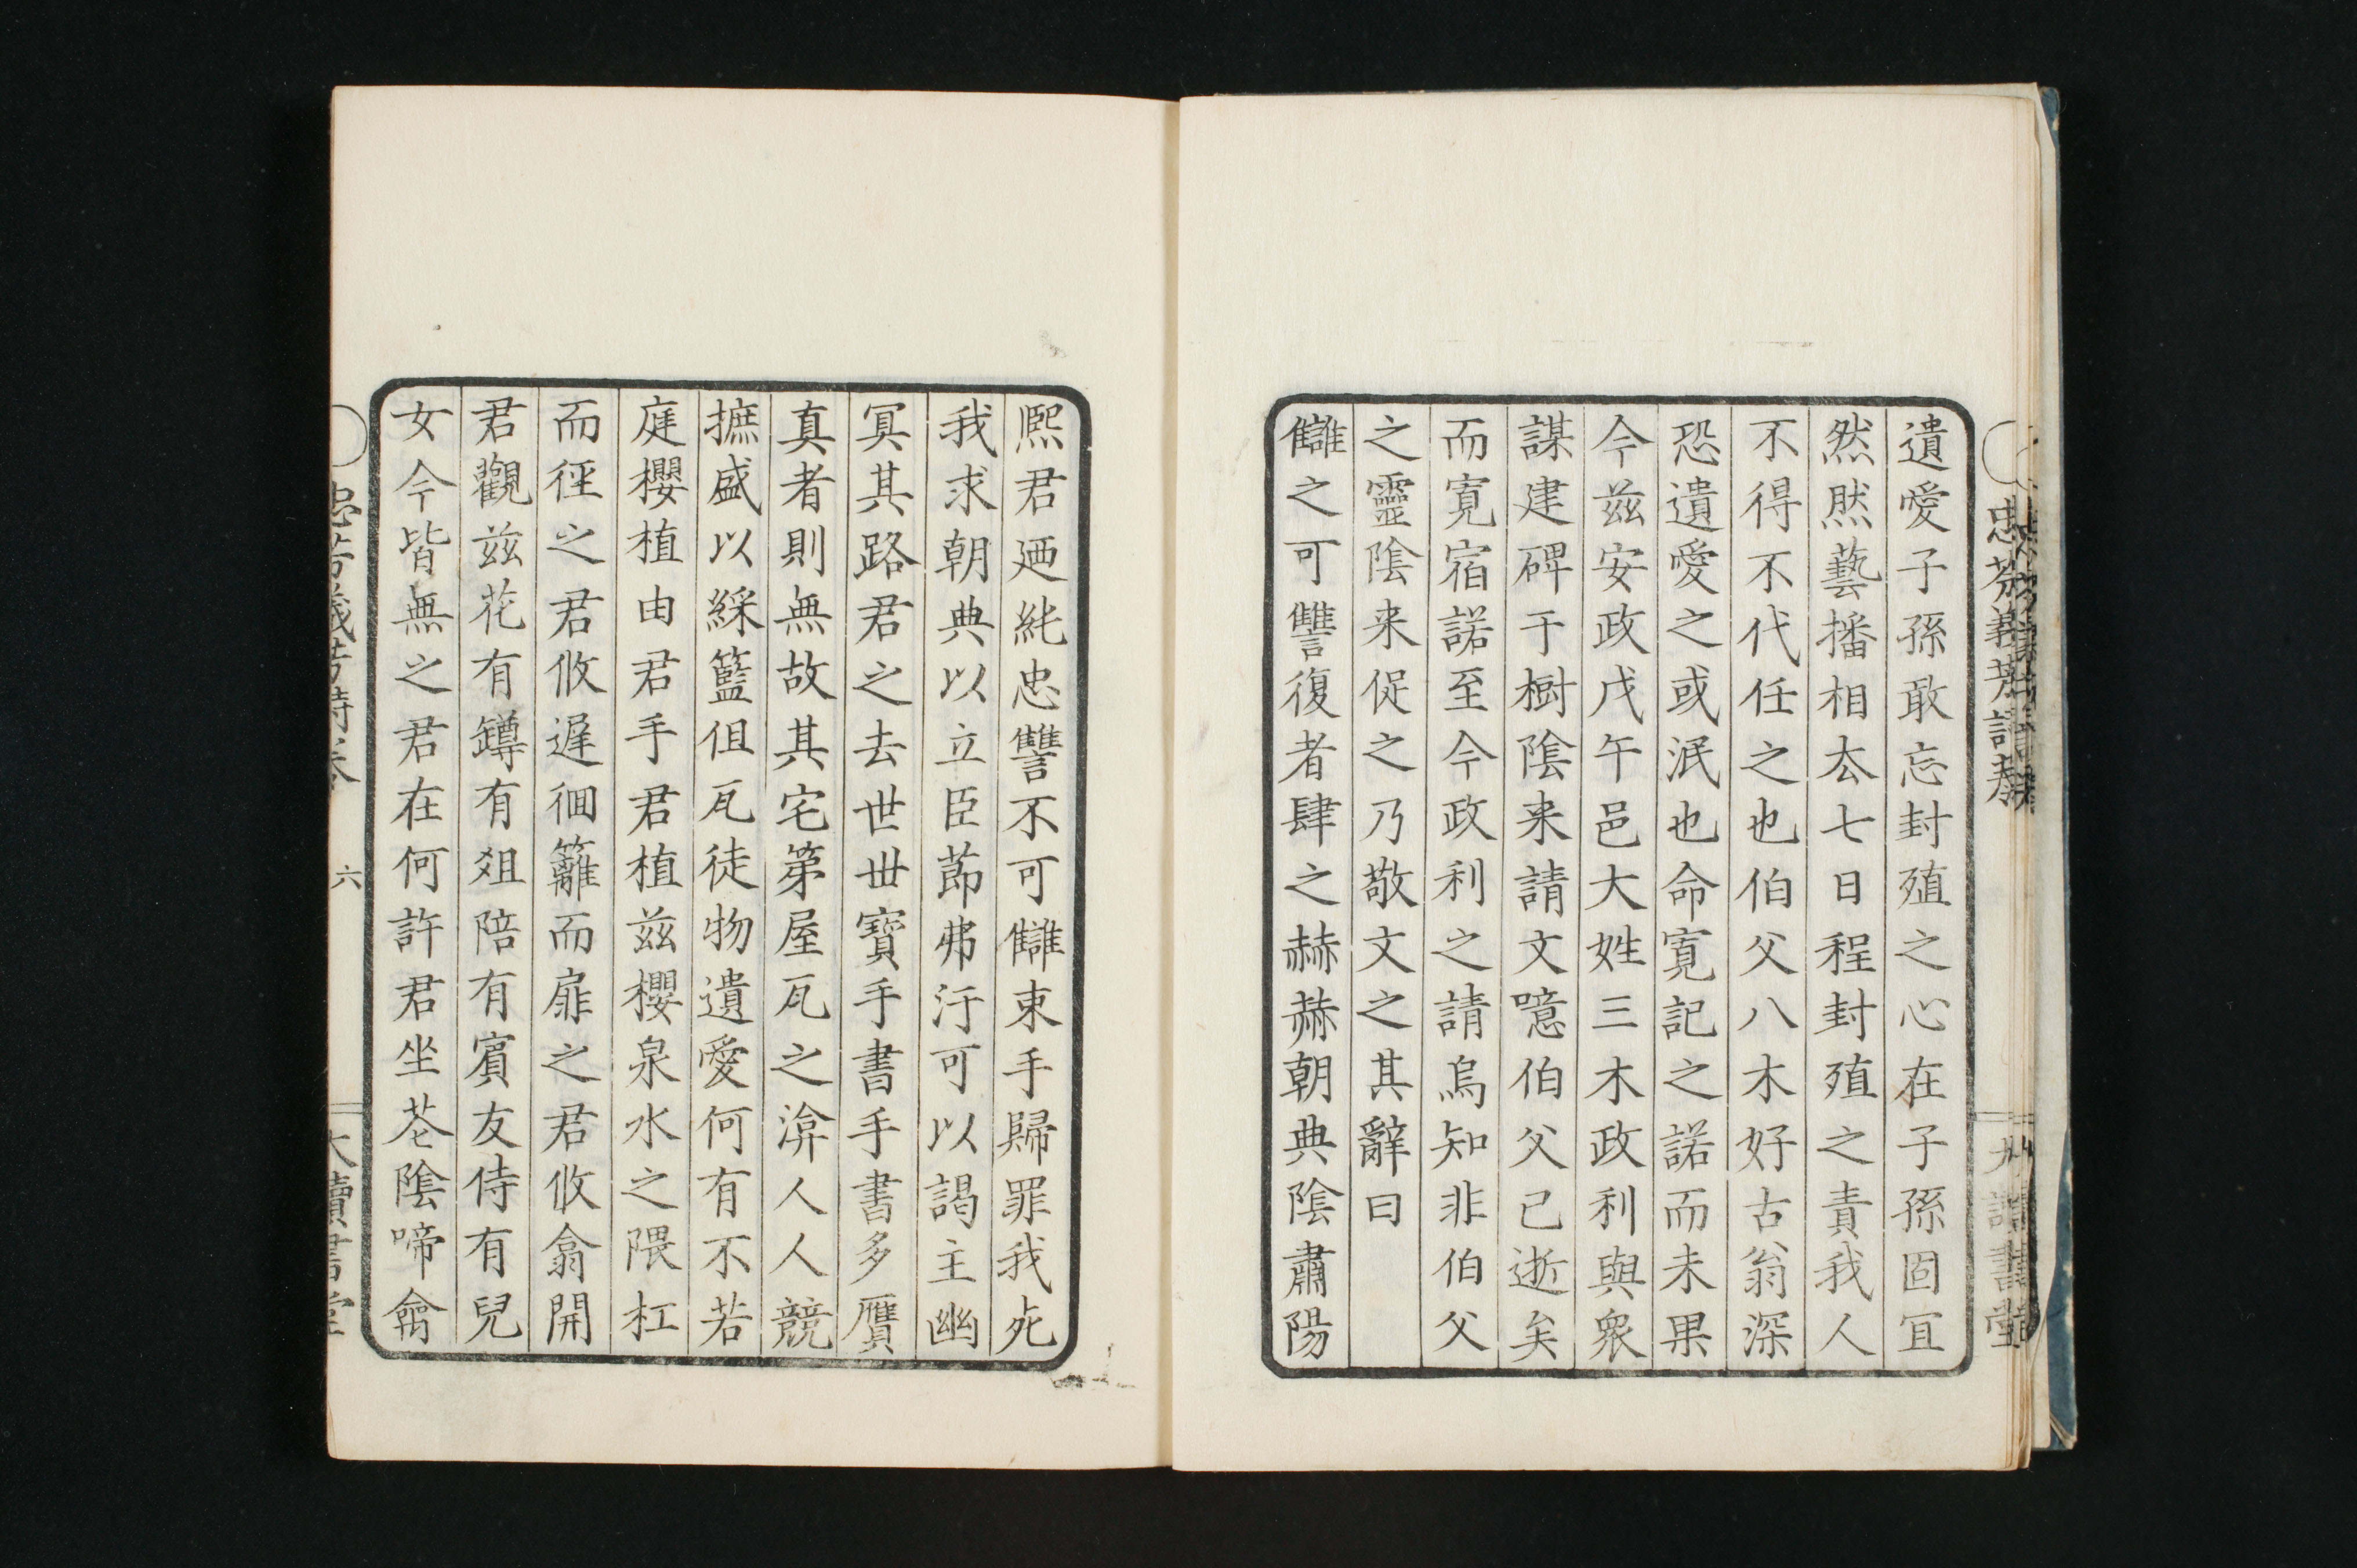 遺愛子孫敢忘封殖之心在子孫固宜
然然藝播相去七日程封殖之責我人
不得不代任之也伯父八木好古翁深
恐遺愛之或泯也命寛記之諾而未果
今茲安政戊午邑大姓三木政利與衆
謀建碑于樹陰来請文噫伯父已逝矣
而寛宿諾至今政利之請烏知非伯父
之靈陰来促之乃敬文之其辭曰
讎之可讐復者肆之赫赫朝典陰肅陽
熙君廼純忠讐不可讎束手歸罪我死
我求朝典以立臣節弗汙可以謁主幽
冥其路君之去世世寶手書手書多贋
真者則無故其宅第屋瓦之渰人人競
摭盛以綵籃但瓦徒物遺愛何有不若
庭櫻植由君手君植茲櫻泉水之隈杠
而徑之君攸遲徊籬而扉之君攸翕開
君觀茲花有罇有俎陪有賓友侍有兒
女今皆無之君在何許君坐花陰啼禽
忠芬義芳詩巻
六
大讀書堂